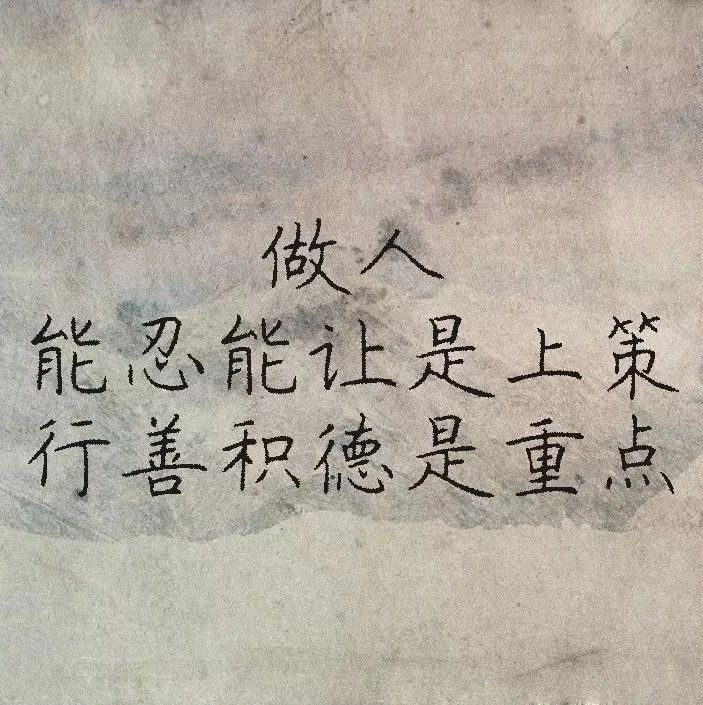 做人
能忍能让是上策
行善积德是重点